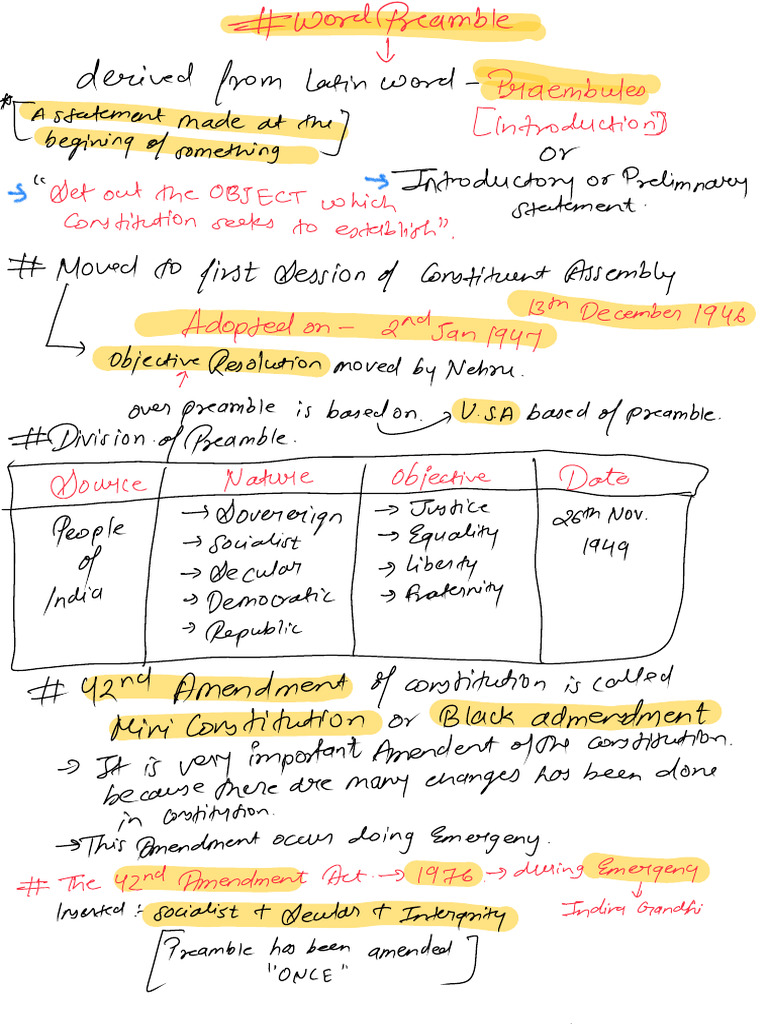 # Word Preamble
derived from Latin word - Praembules
[Introduction]
or
* [A statement made at the
begining of something]
→ Introductory or Prelimnary
statement.
→ "Set out the OBJECT which
Constitution seeks to establish".
# Moved to first Session of Constituent Assembly
13th December 1946
Adopted on - 2nd Jan 1947
→ Objective Resolution moved by Nehru.
↑
over preamble is based on. → U.S.A based of preamble.
# Division of Preamble.
Source Nature Objective Date
People
of
India
→ Sovereign
→ Socialist
→ Secular
→ Democratic
→ Republic
→ Justice
→ Equality
→ Liberty
→ Fraternity
26th Nov.
1949
# 42nd Amendment of constitution is called
Mini Constitution or Black admendment
→ It is very important Amendent of the constitution.
because there are many changes has been done
in constitution.
→ This Amendment occur doing Emergeny.
# The 42nd Amendment Act → 1976 → during Emergency
↓
Indira Gandhi
Inserted :- Socialist + Secular + Intergrity
[Preamble has been amended
"ONCE"]